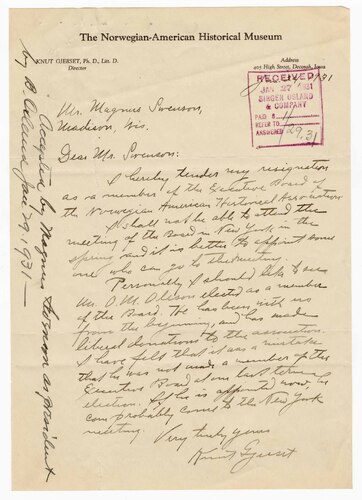 The Norwegian-American Historical Museum
KNUT GJERSET, Ph. D., Litt. D.
Director
Address
405 High Street, Decorah, Iowa
RECEIVED
JAN 27 1931
SINGER USLAND
& COMPANY
PAID $
REFER TO
ANSWERED 1/29.31
Mr. Magnus Swenson,
Madison, Wis.
Dear Mr. Swenson:
I hereby tender my resignation
as a member of the Executive Board of
the Norwegian American Historical Association
I shall not be able to attend the
meeting of the Board in New York in the
spring and it is better to appoint some
one who can go to the meeting.
Personally I should like to see
Mr. O. M. Oleson elected as a member
of the Board. He has been with us
from the beginning, and has made
liberal donations to the association.
I have felt that it was a mistake
that he was not made a member of the
Executive Board at our last term
election. If he is appointed now he
can probably come to the New York
meeting.
Very truly yours
Knut Gjerset
Accepted by Magnus Swenson as president
Jan 29, 1931—